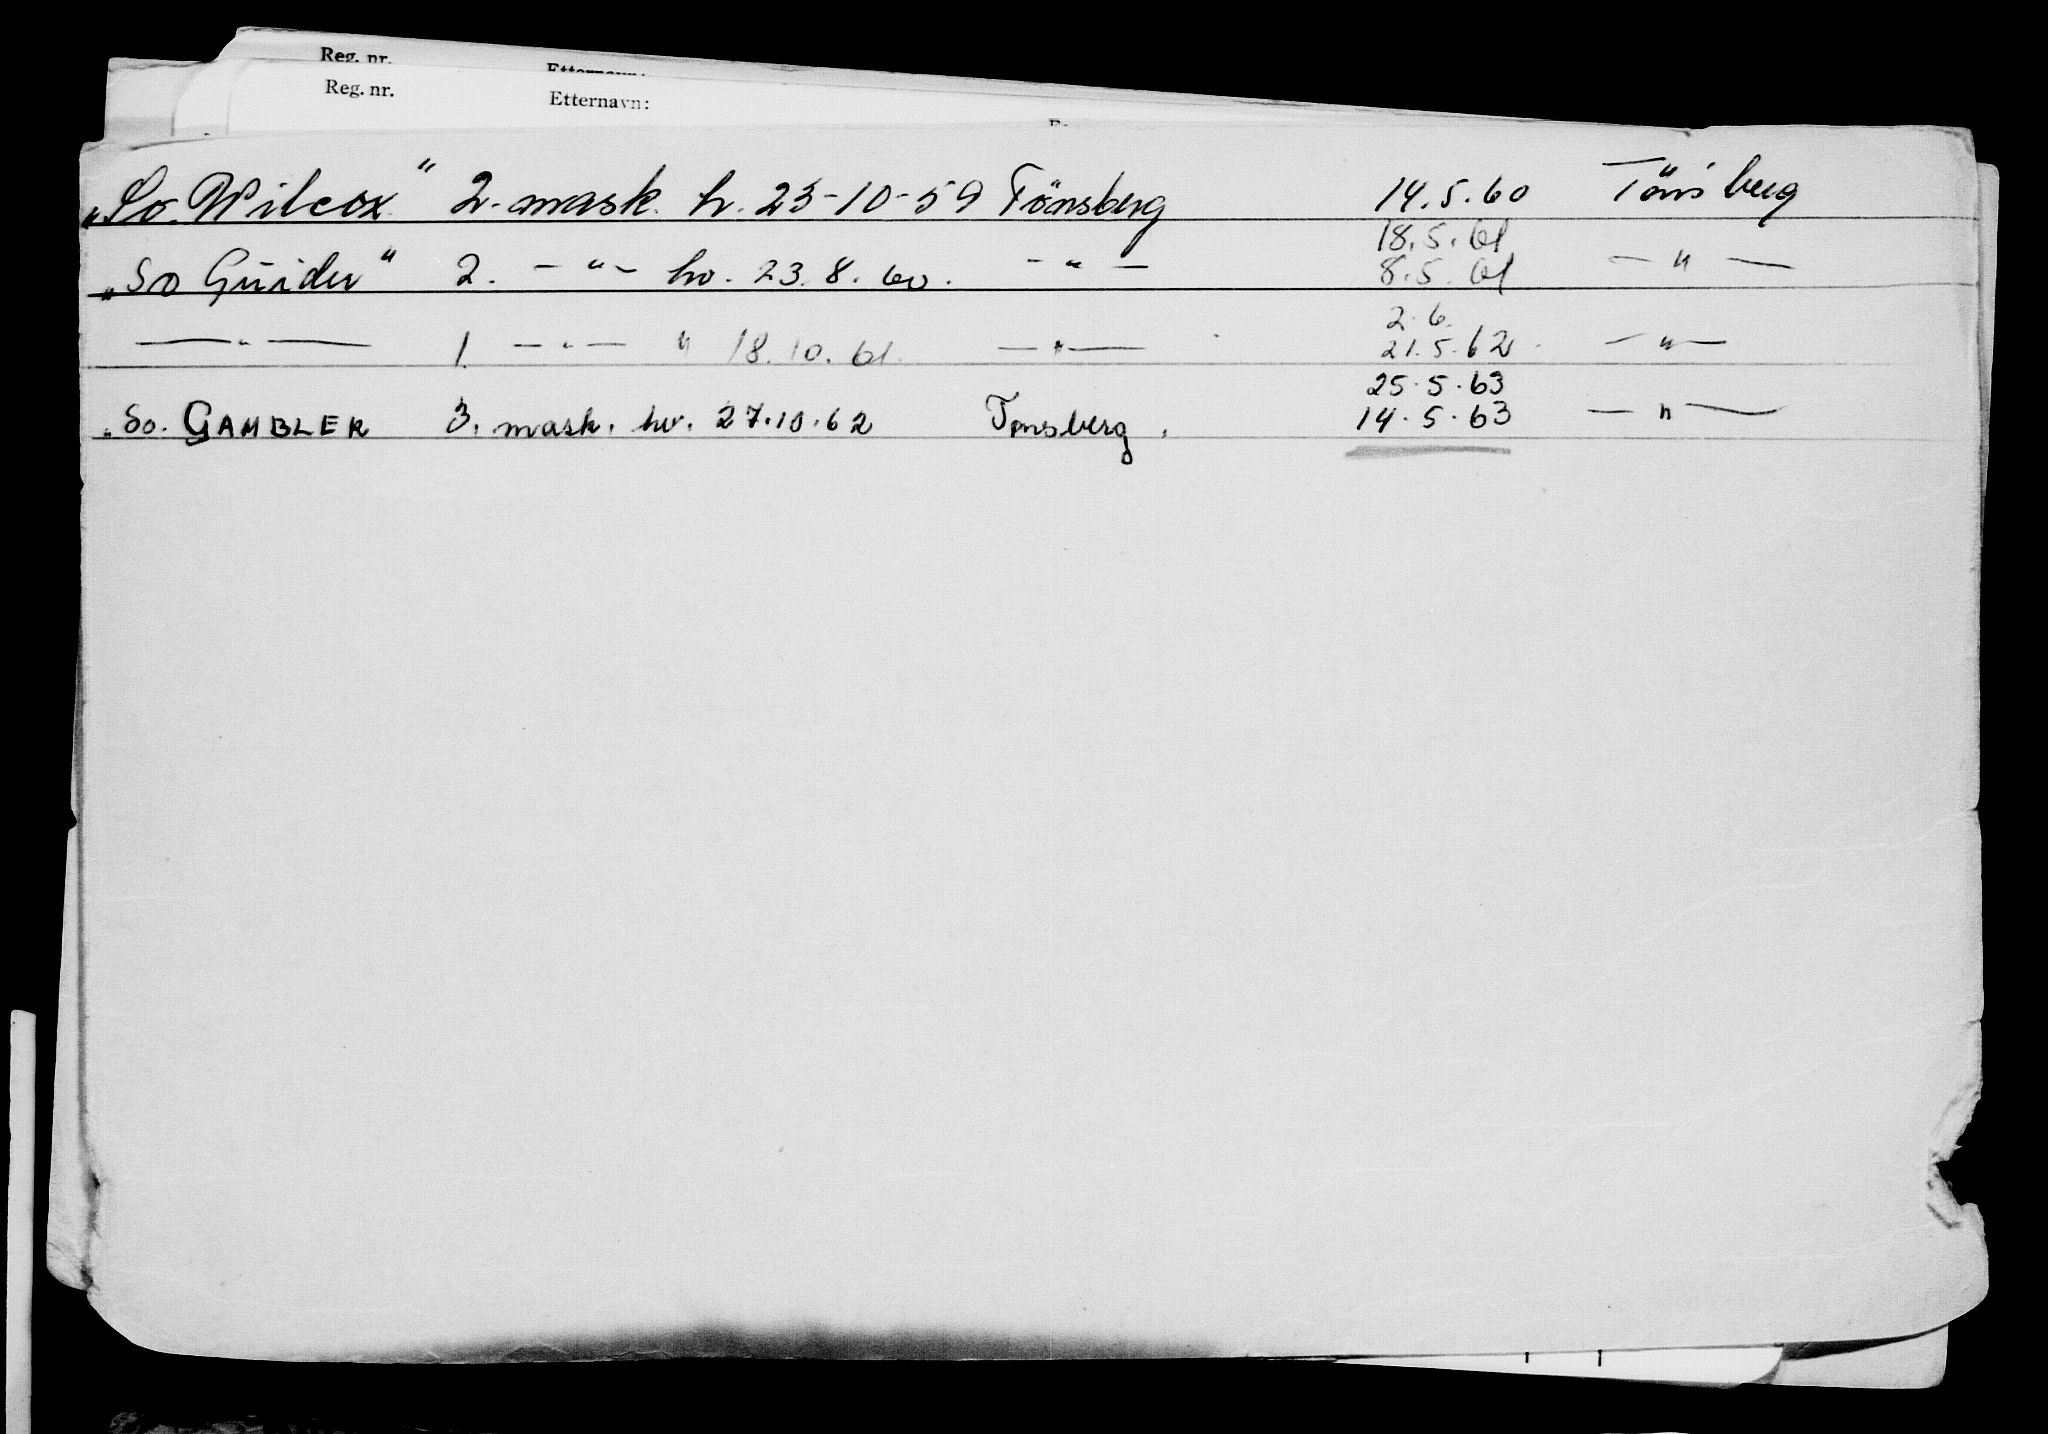 Reg. nr.
Reg. nr. Etternavn:
„So. Wilcox" 2. mask. h. 23-10-59 Tönsberg 14.5.60 Tönsberg
18.5.61
„So Guider" 2. — " — hv. 23.8.60. — " — 8.5.61 — " —
2.6.
— " — 1. — " — " 18.10.61. — " — 21.5.62 — " —
25.5.63
„So. GAMBLER 3. mask. hv. 27.10.62 Tønsberg. 14.5.63 — " —